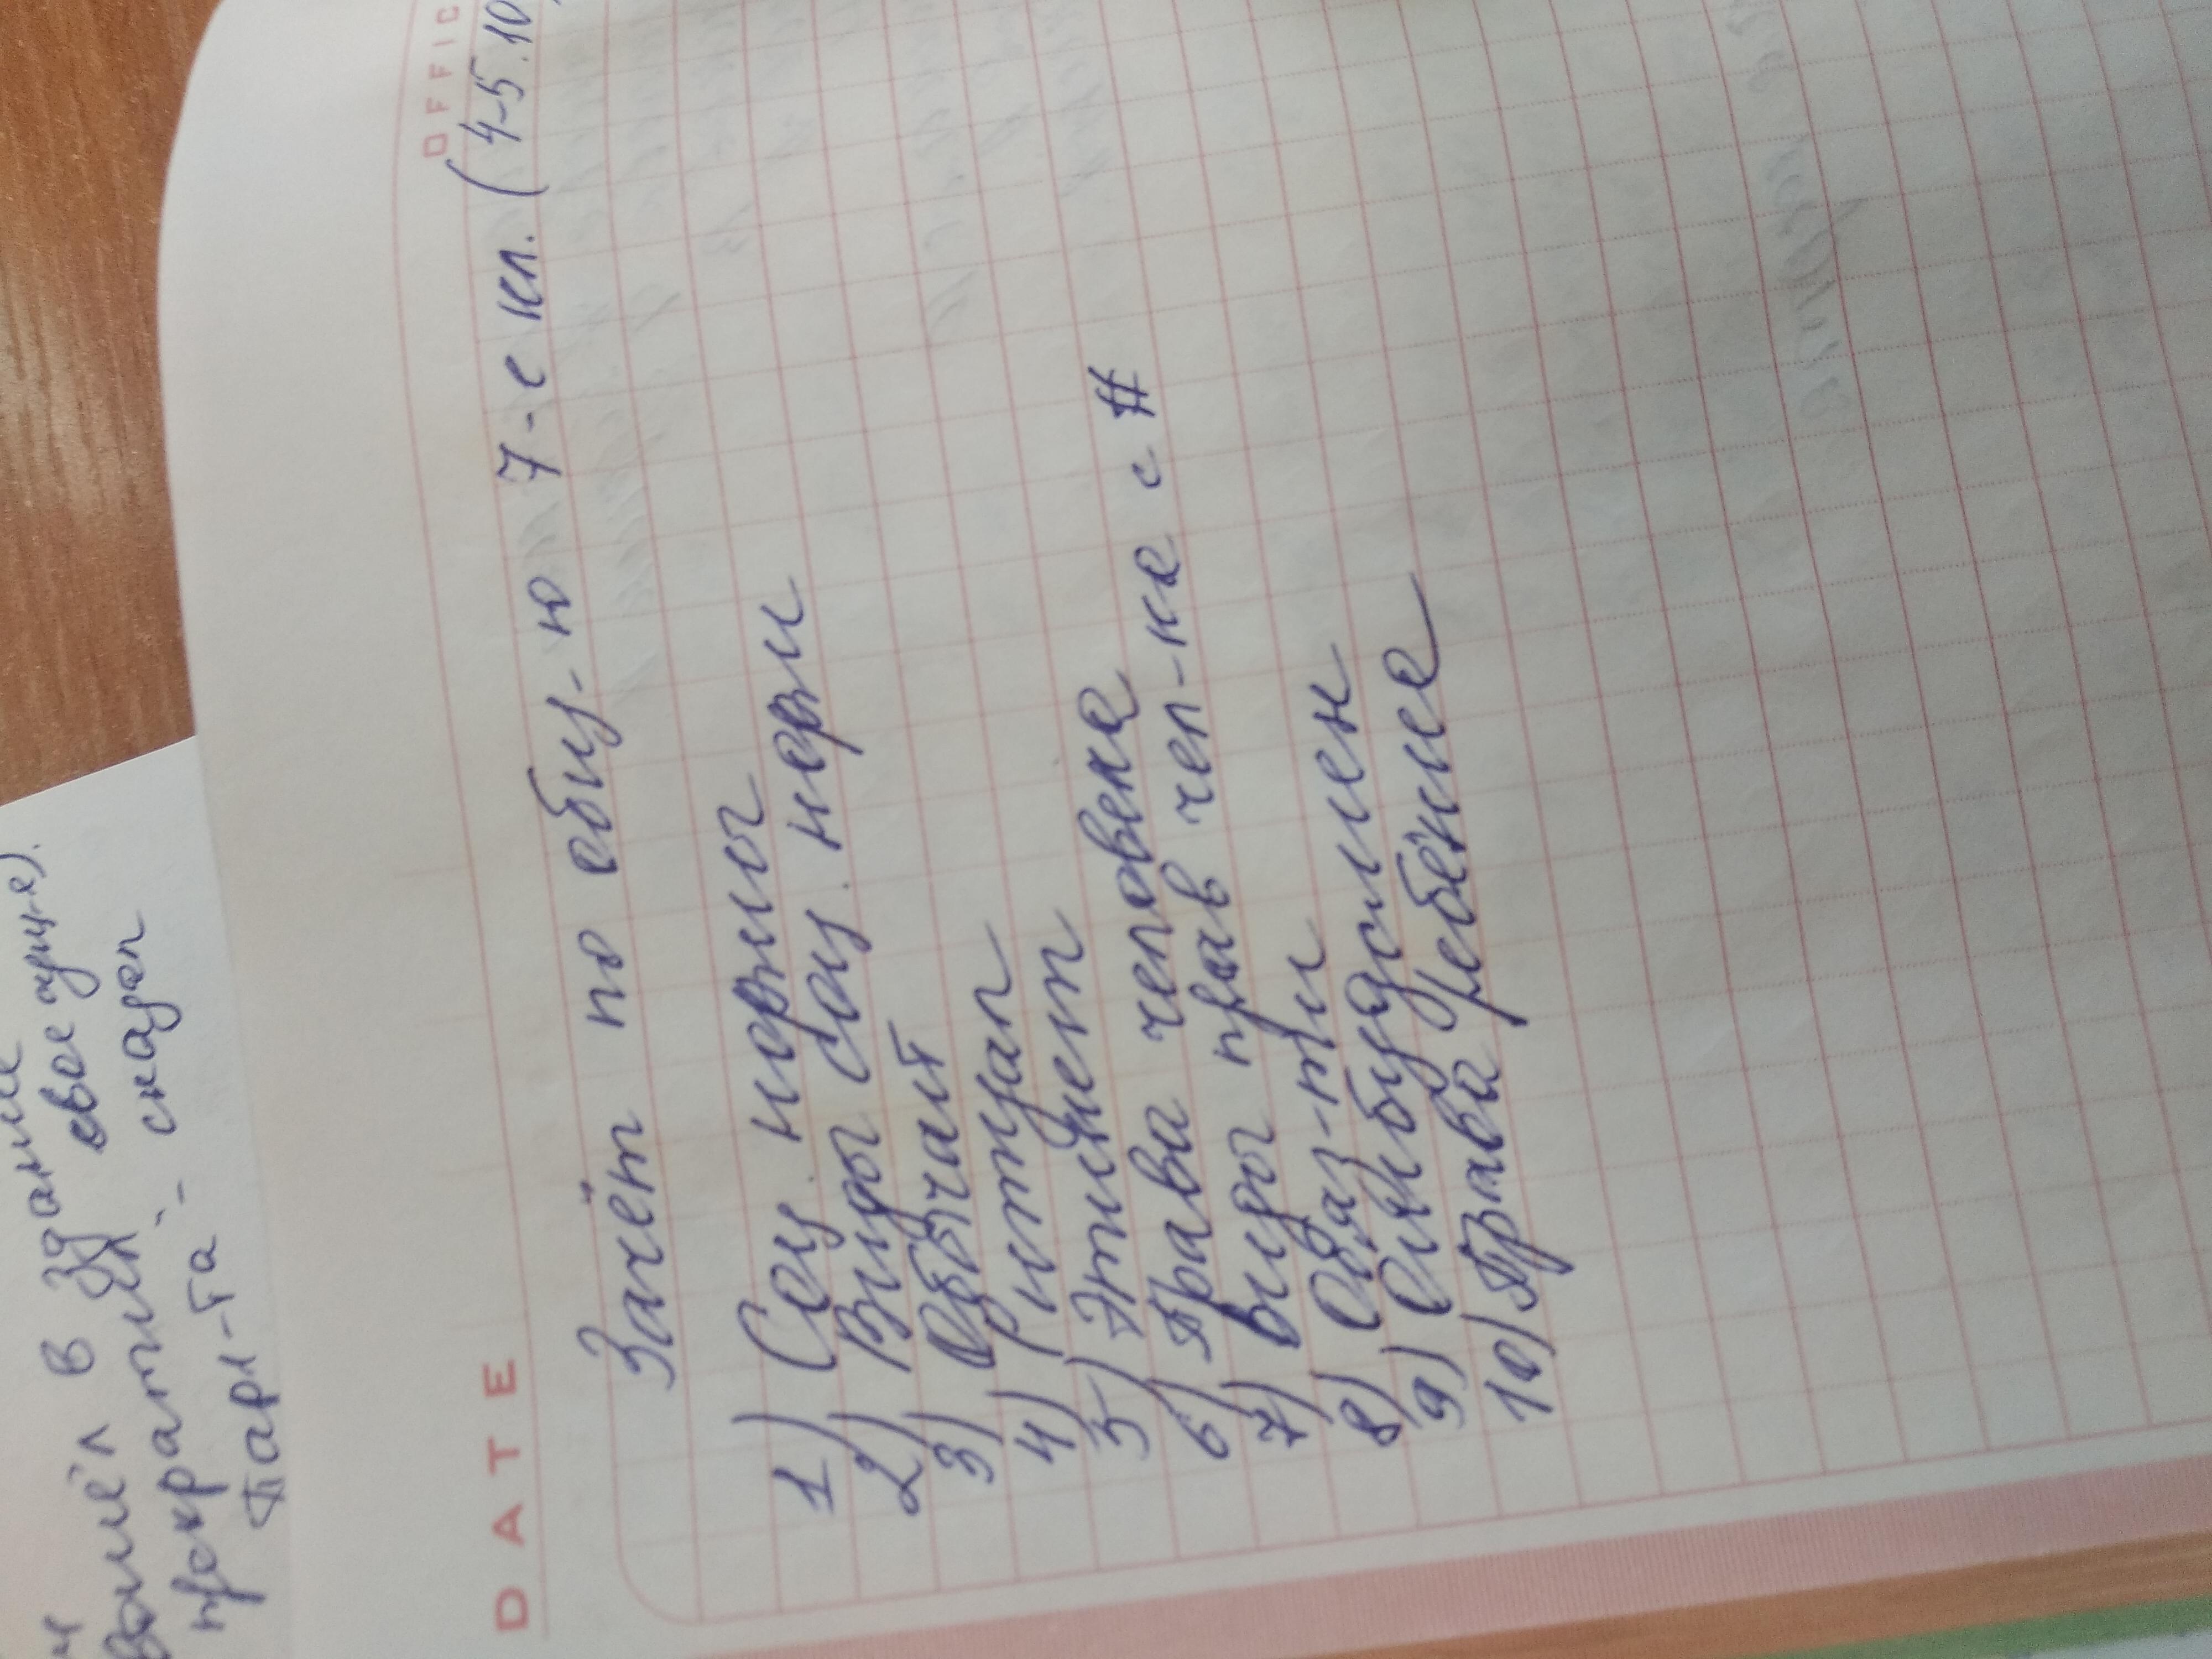 вошёл в здание
прократил свое
Парл-та - снаряд
DATE
OFFIC
Зачёт по общ-ю 7-е кл. (4-5.10
1) Соц. нормы
2) Виды соц. норм
3) Обычай
4) Ритуал
5) Этикет
6) Права человека
7) Виды прав чел-ка с #
8) Обяз-ти
9) Омбудсмен
10) Права ребёнка